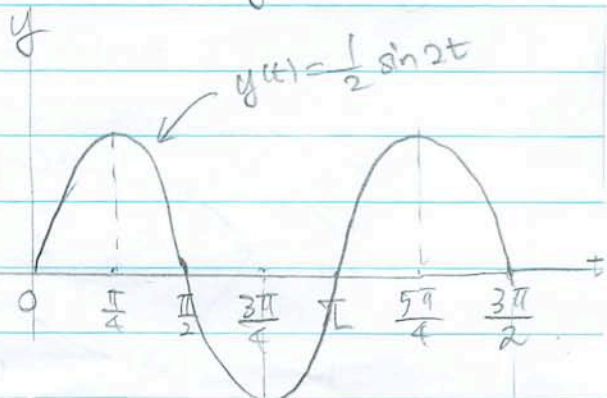 y
y(t) = 1/2 sin 2t
t
0 π/4 π/2 3π/4 π 5π/4 3π/2